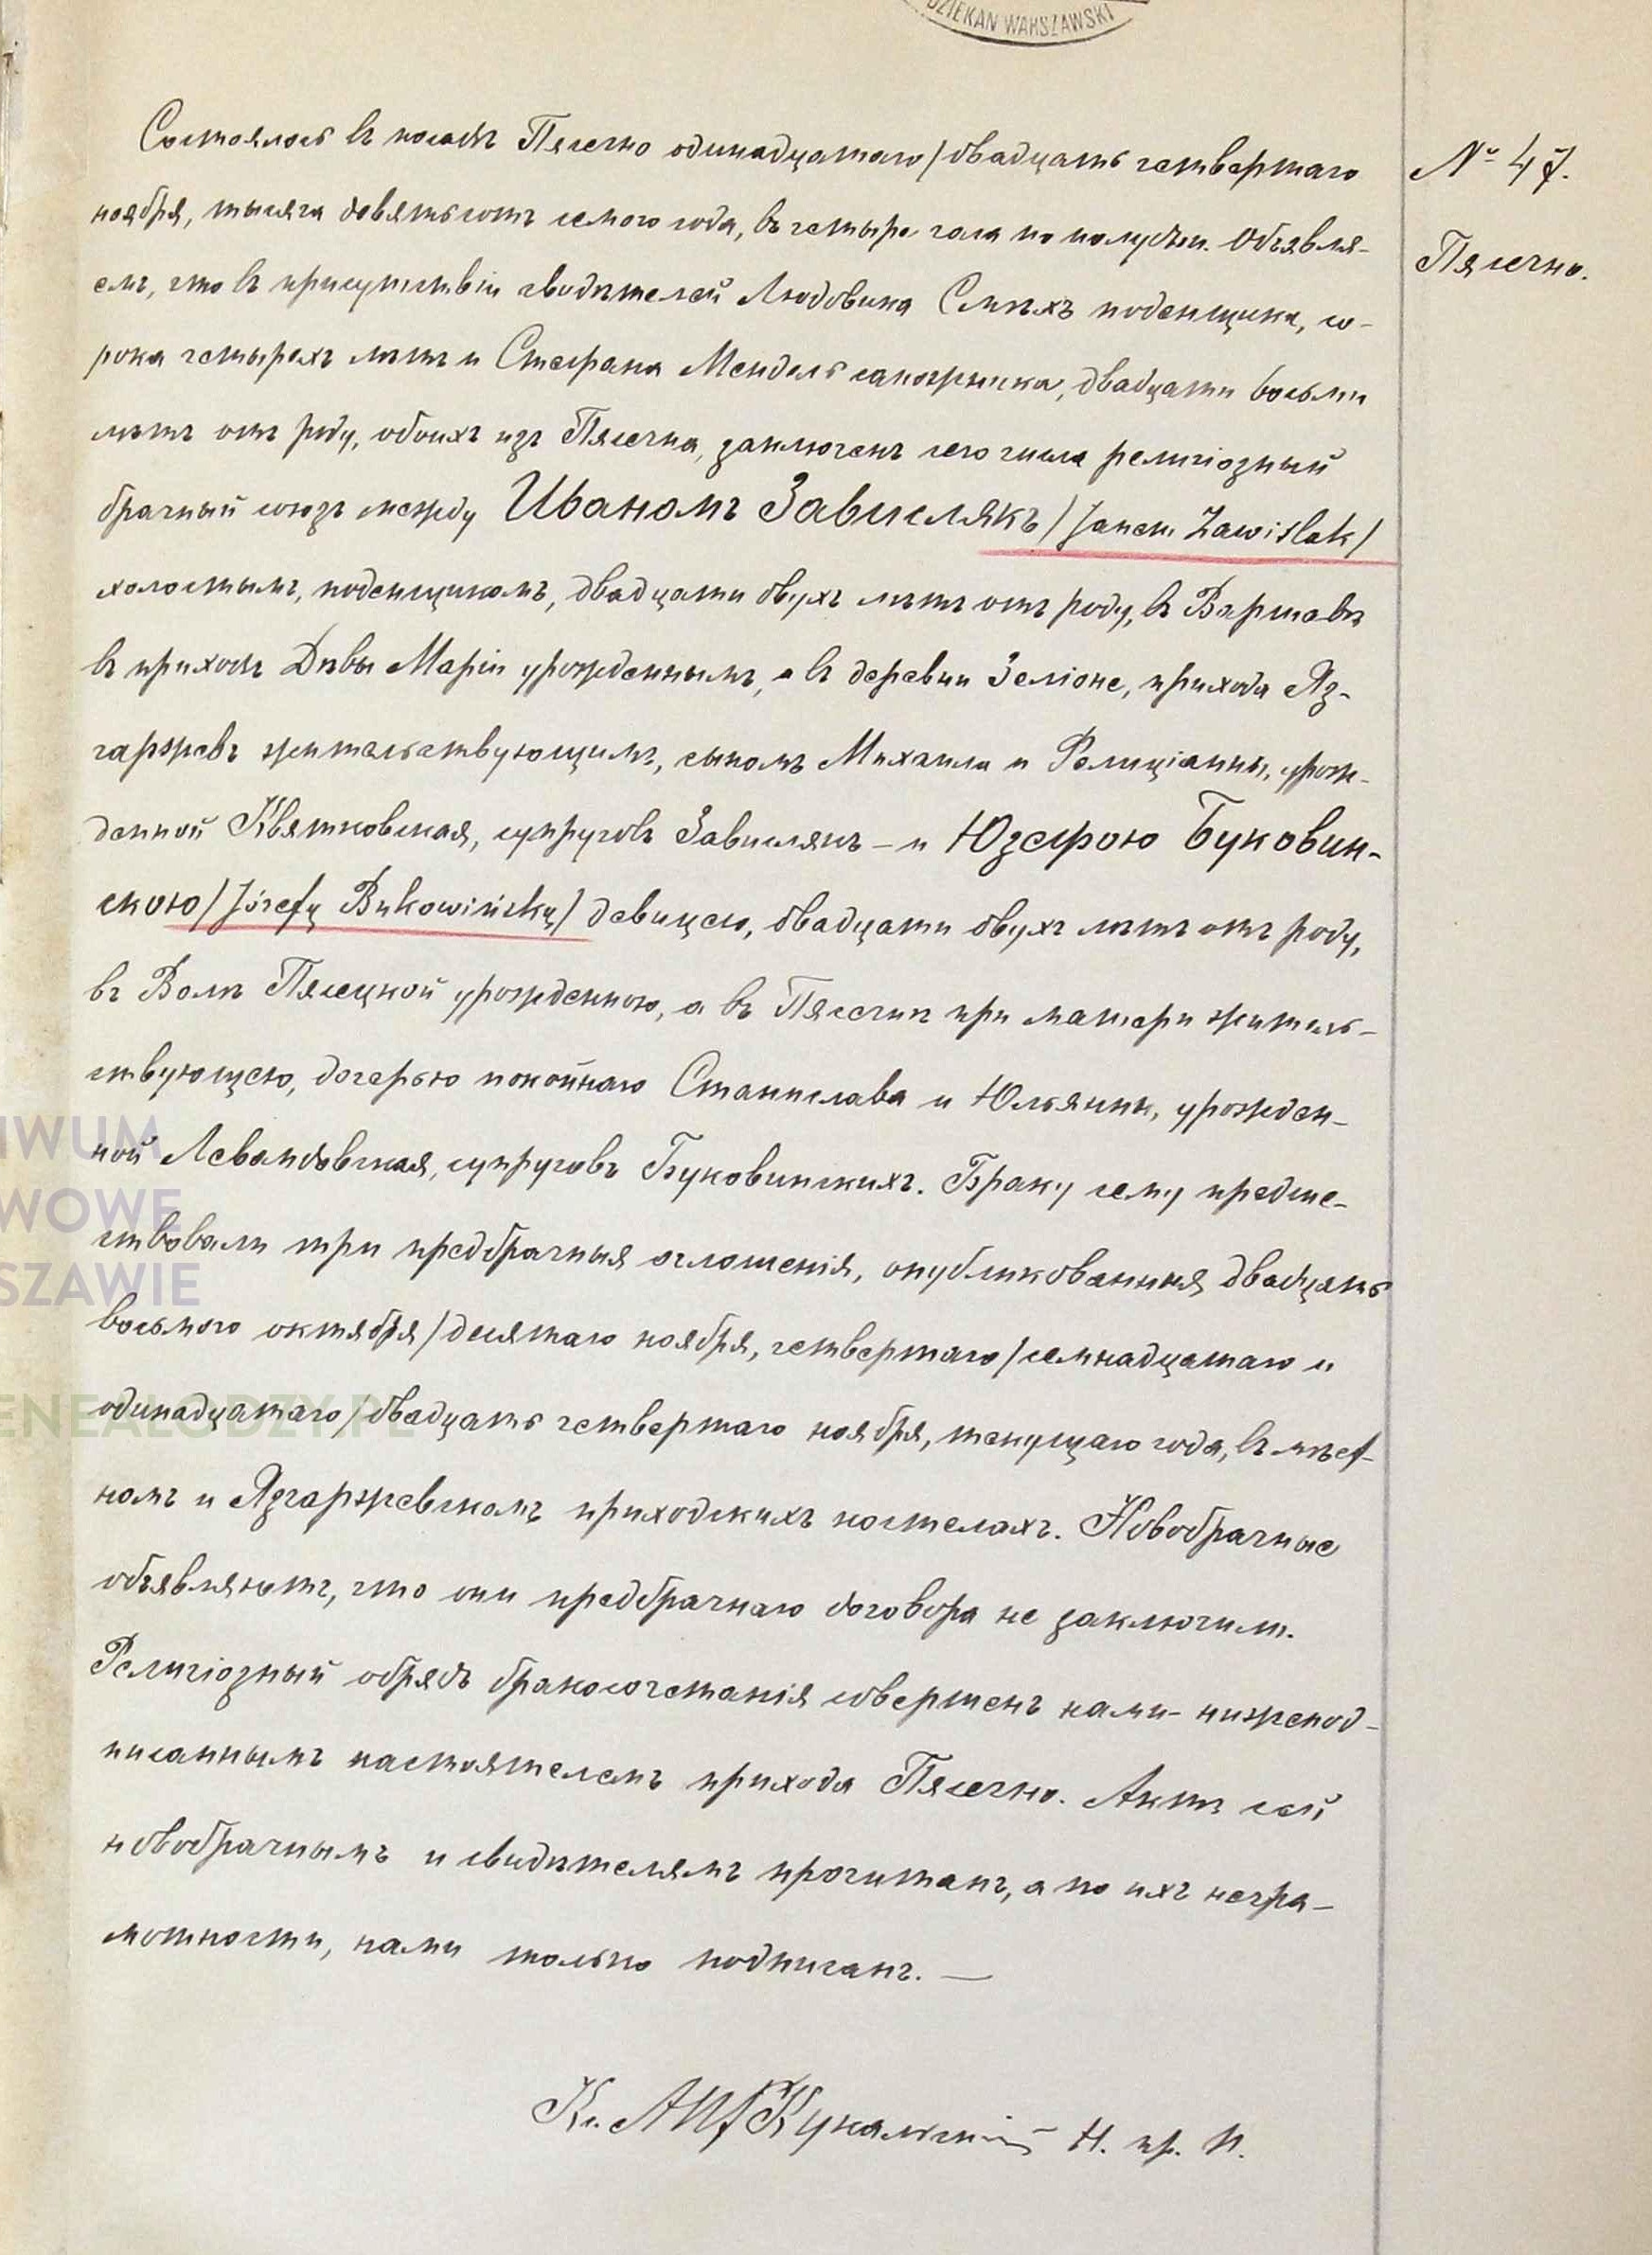 DZIEKAN WARSZAWSKI
Состоялось въ посадѣ Пясечно одинадцатаго/двадцать четвертаго
№ 47.
ноября, тысяча девятьсотъ семого года, въ четыре часа по полудни. Объявля-
Пясечно.
емъ, что въ присутствіи сводѣтелей Людовика Смѣхъ поденщика, со-
рока четырехъ лѣтъ и Стефана Мендель сапожника, двадцати восьми
лѣтъ отъ роду, обоихъ изъ Пясечна, заключенъ сего числа религіозный
брачный союзъ между Иваномъ Завислякъ/Janem Zawiślak/
холостымъ, поденщикомъ, двадцати двухъ лѣтъ отъ роду, въ Варшавѣ
въ приходѣ Дѣвы Маріи урожденнымъ, а въ деревни Зеліоне, прихода Яз-
гаржевъ жительствующимъ, сыномъ Михаила и Фелиціанны, урож-
денной Квятковская, супруговъ Завислякъ - и Юзефою Буковин-
скою/Józefą Bukowińską/ девицею, двадцати двухъ лѣтъ отъ роду,
въ Воли Пясецкой урожденною, а въ Пясечнѣ при матери житель-
ствующею, дочерью покойнаго Станислава и Юльянны, урожден-
ной Левандовская, супруговъ Буковинскихъ. Браку сему предше-
ствовали три предбрачныя оглошенія, опубликованныя двадцать
восьмого октября/десятаго ноября, четвертаго/семнадцатаго и
одинадцатаго/двадцать четвертаго ноября, текущаго года, въ мѣст-
номъ и Язгаржевскомъ приходскихъ костелахъ. Новобрачные
объявляютъ, что они предбрачнаго договора не заключили.
Религіозный обрядъ бракосочетанія совершенъ нами - нижепод-
писаннымъ настоятелемъ прихода Пясечно. Актъ сей
новобрачнымъ и свидѣтелямъ прочитанъ, а по ихъ негра-
мотности, нами только подписанъ. —
Кс. Н. пр. П.
IWUM
WOWE
SZAWIE
ENEALODZY.PL